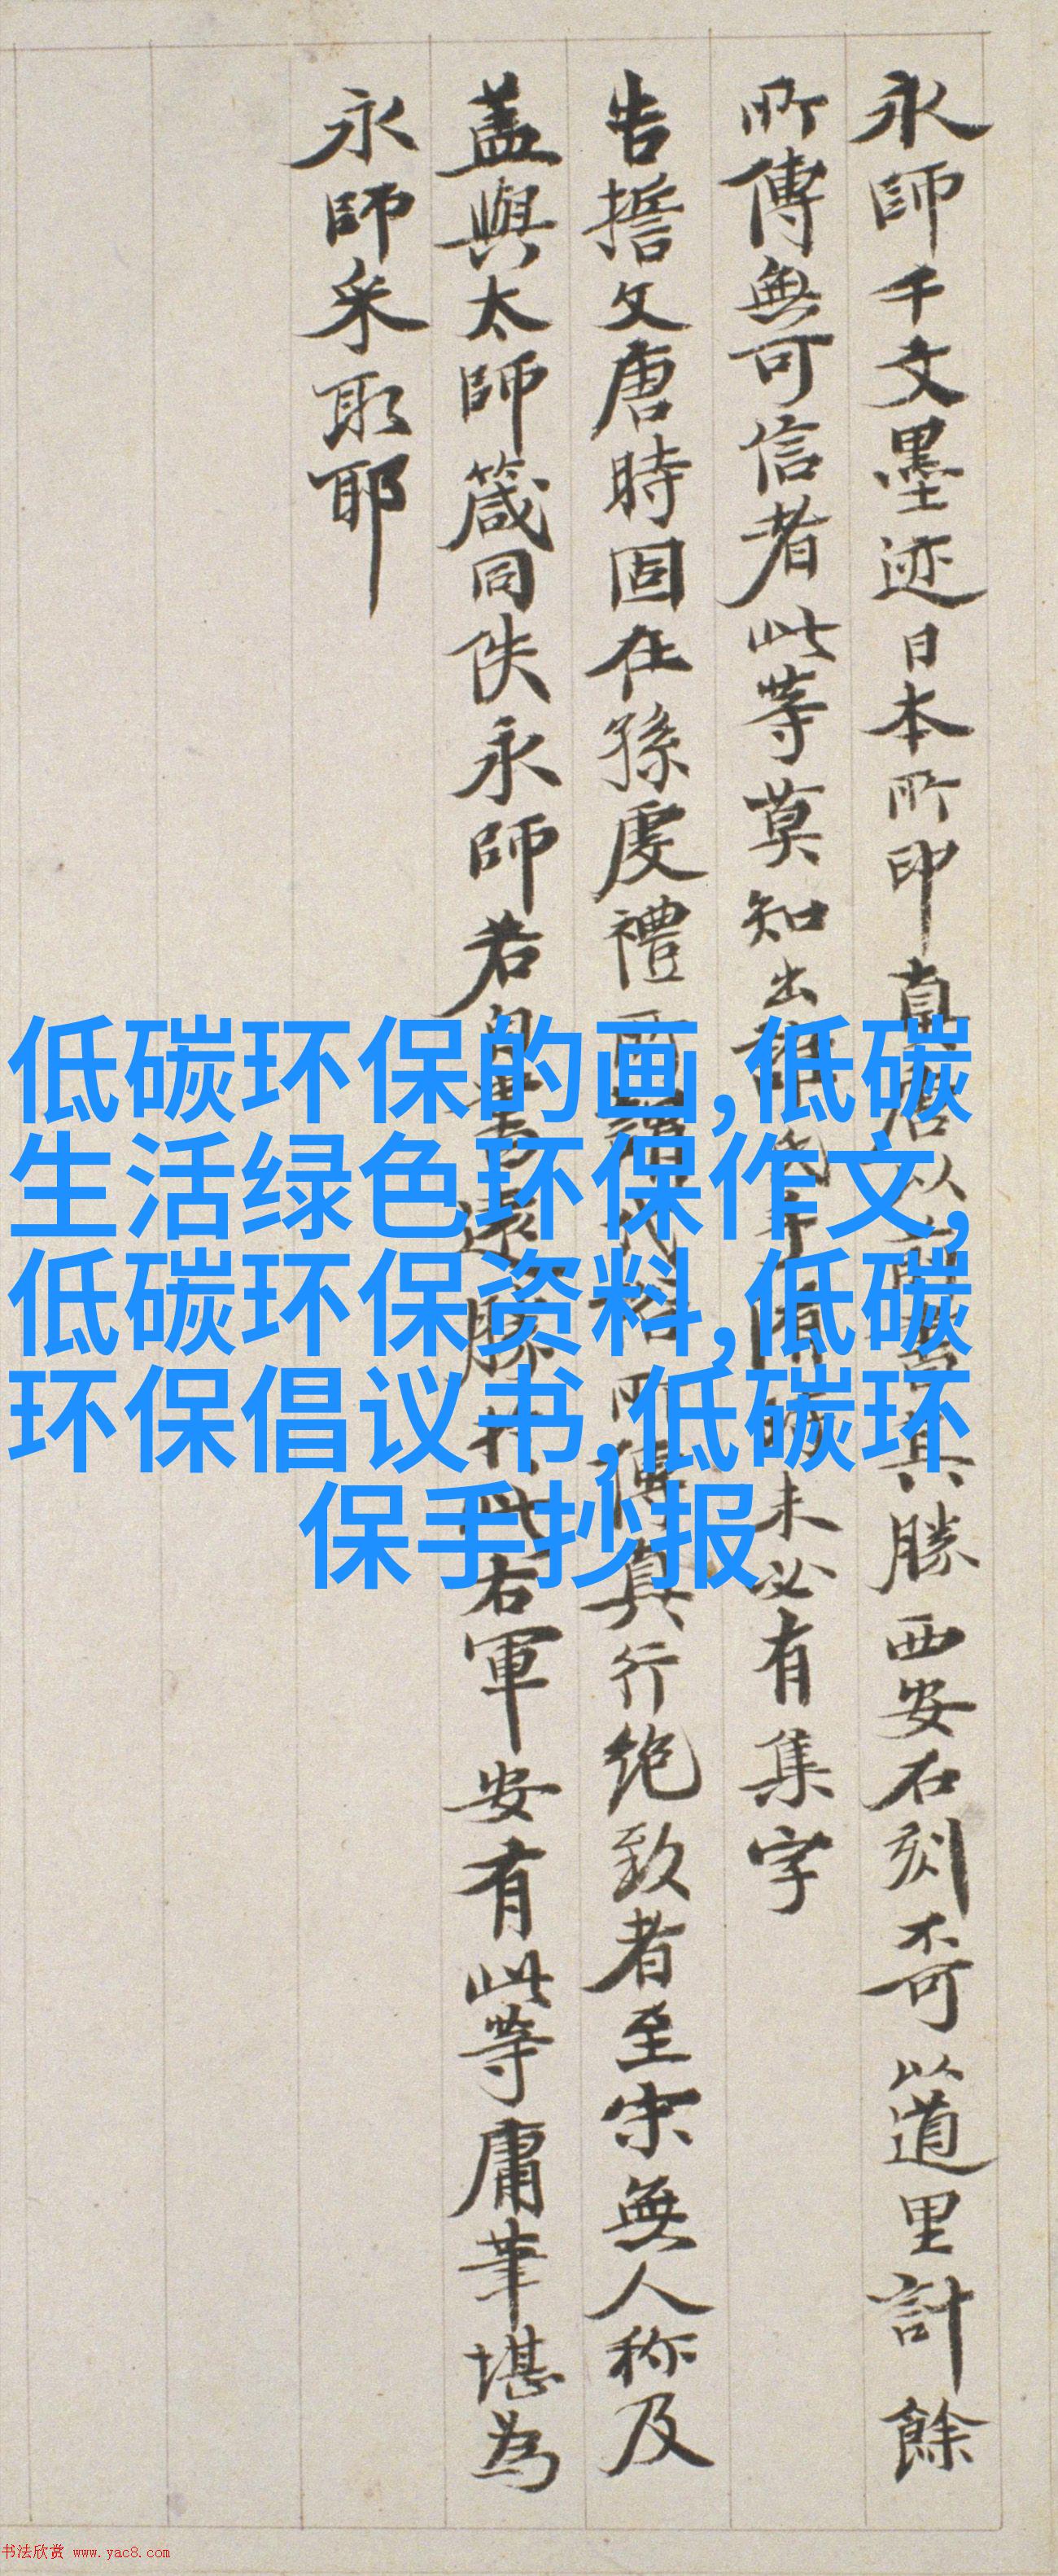 永師千文墨迹日本所印真唐以
勝西安石刻不可以道里計餘
所傳無可信者此等莫知出誰氏手
未必有集字
告誓文唐時固在孫虔禮
所傳真行絶致者至宋無人称及
盖與太師箴同佚永師若自
右軍安有此等庸筆堪為
永師采取耶
低碳环保的画,低碳
生活绿色环保作文,
低碳环保资料,低碳
环保倡议书,低碳环
保手抄报
书法欣赏 www.yac8.com